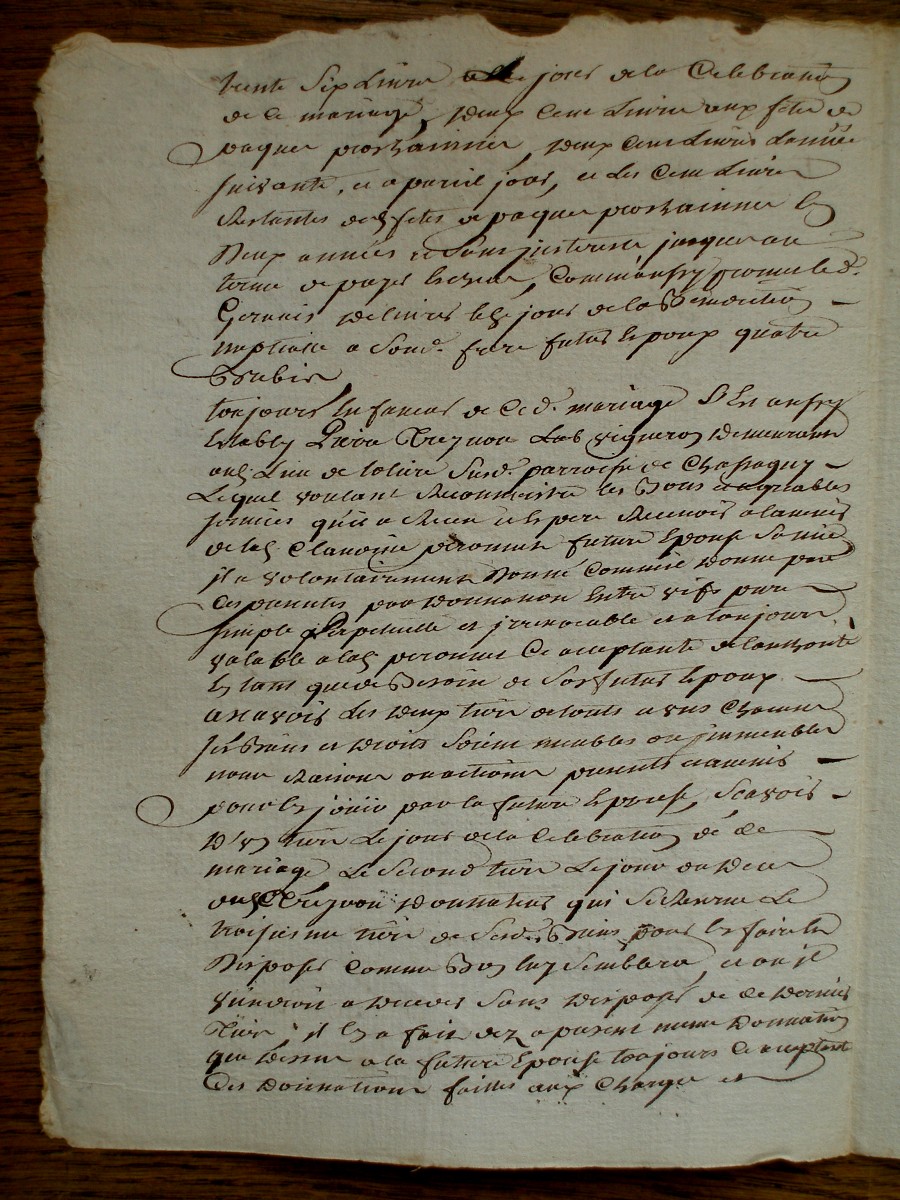 trente six livres le jour de la Celebration
de ce mariage, deux Cent Livres aux fetes de
paques prochaines, deux Cent Livres lannée
suivante, et a pareil jour, et les Cent Livres
Restantes des fetes de paques prochaines en
deux années et sans jnterest jusques au
terme de payer Comme aussy promet led.
Gervais delivrer le jour de la Benediction
nuptiale a sond. frere futur Epoux quatre
Brebis
toujours En faveur de Ced. mariage S Est aussy
Etably Pierre vigneron demeurant
aud. Lieu de susd. parroisse de Chassagny
Lequel voulant Reconnoistre les Bons agreables
services qu'il a Receu et Espere Recevoir a lavenir
de lad. Claudine peronnet future Epouse sa niece
jl a volontairement Donné Comme il donne par
Ces presentes par donnation Entre vifs pure
simple Perpetuelle et jrrevocable et a toujours
valable a lad. peronnet Ce acceptante de lauthorité
En tant que de Besoin de son futur Epoux
a scavoir Les deux tiers de touts a uns Chacuns
ses Biens et droits soient meubles ou jmmeubles
noms Raisons ou actions presents et avenir
pour En jouir par la future Epouse, scavoir
d'un tiers Le jour de la Celebration de Ce
mariage, Le second tiers Le jour du deces
dud. donnateur qui se Reserve Le
troisieme tiers de sesd. Biens pour En faire En
disposer comme Bon luy semblera, et ou jl
viendroit a deceder sans disposer de Ce dernier
Tiers, jl En a fait dez a present meme donnation
que dessus a la future Epouse toujours Ce acceptante
Ces donnations faittes aux Charges et